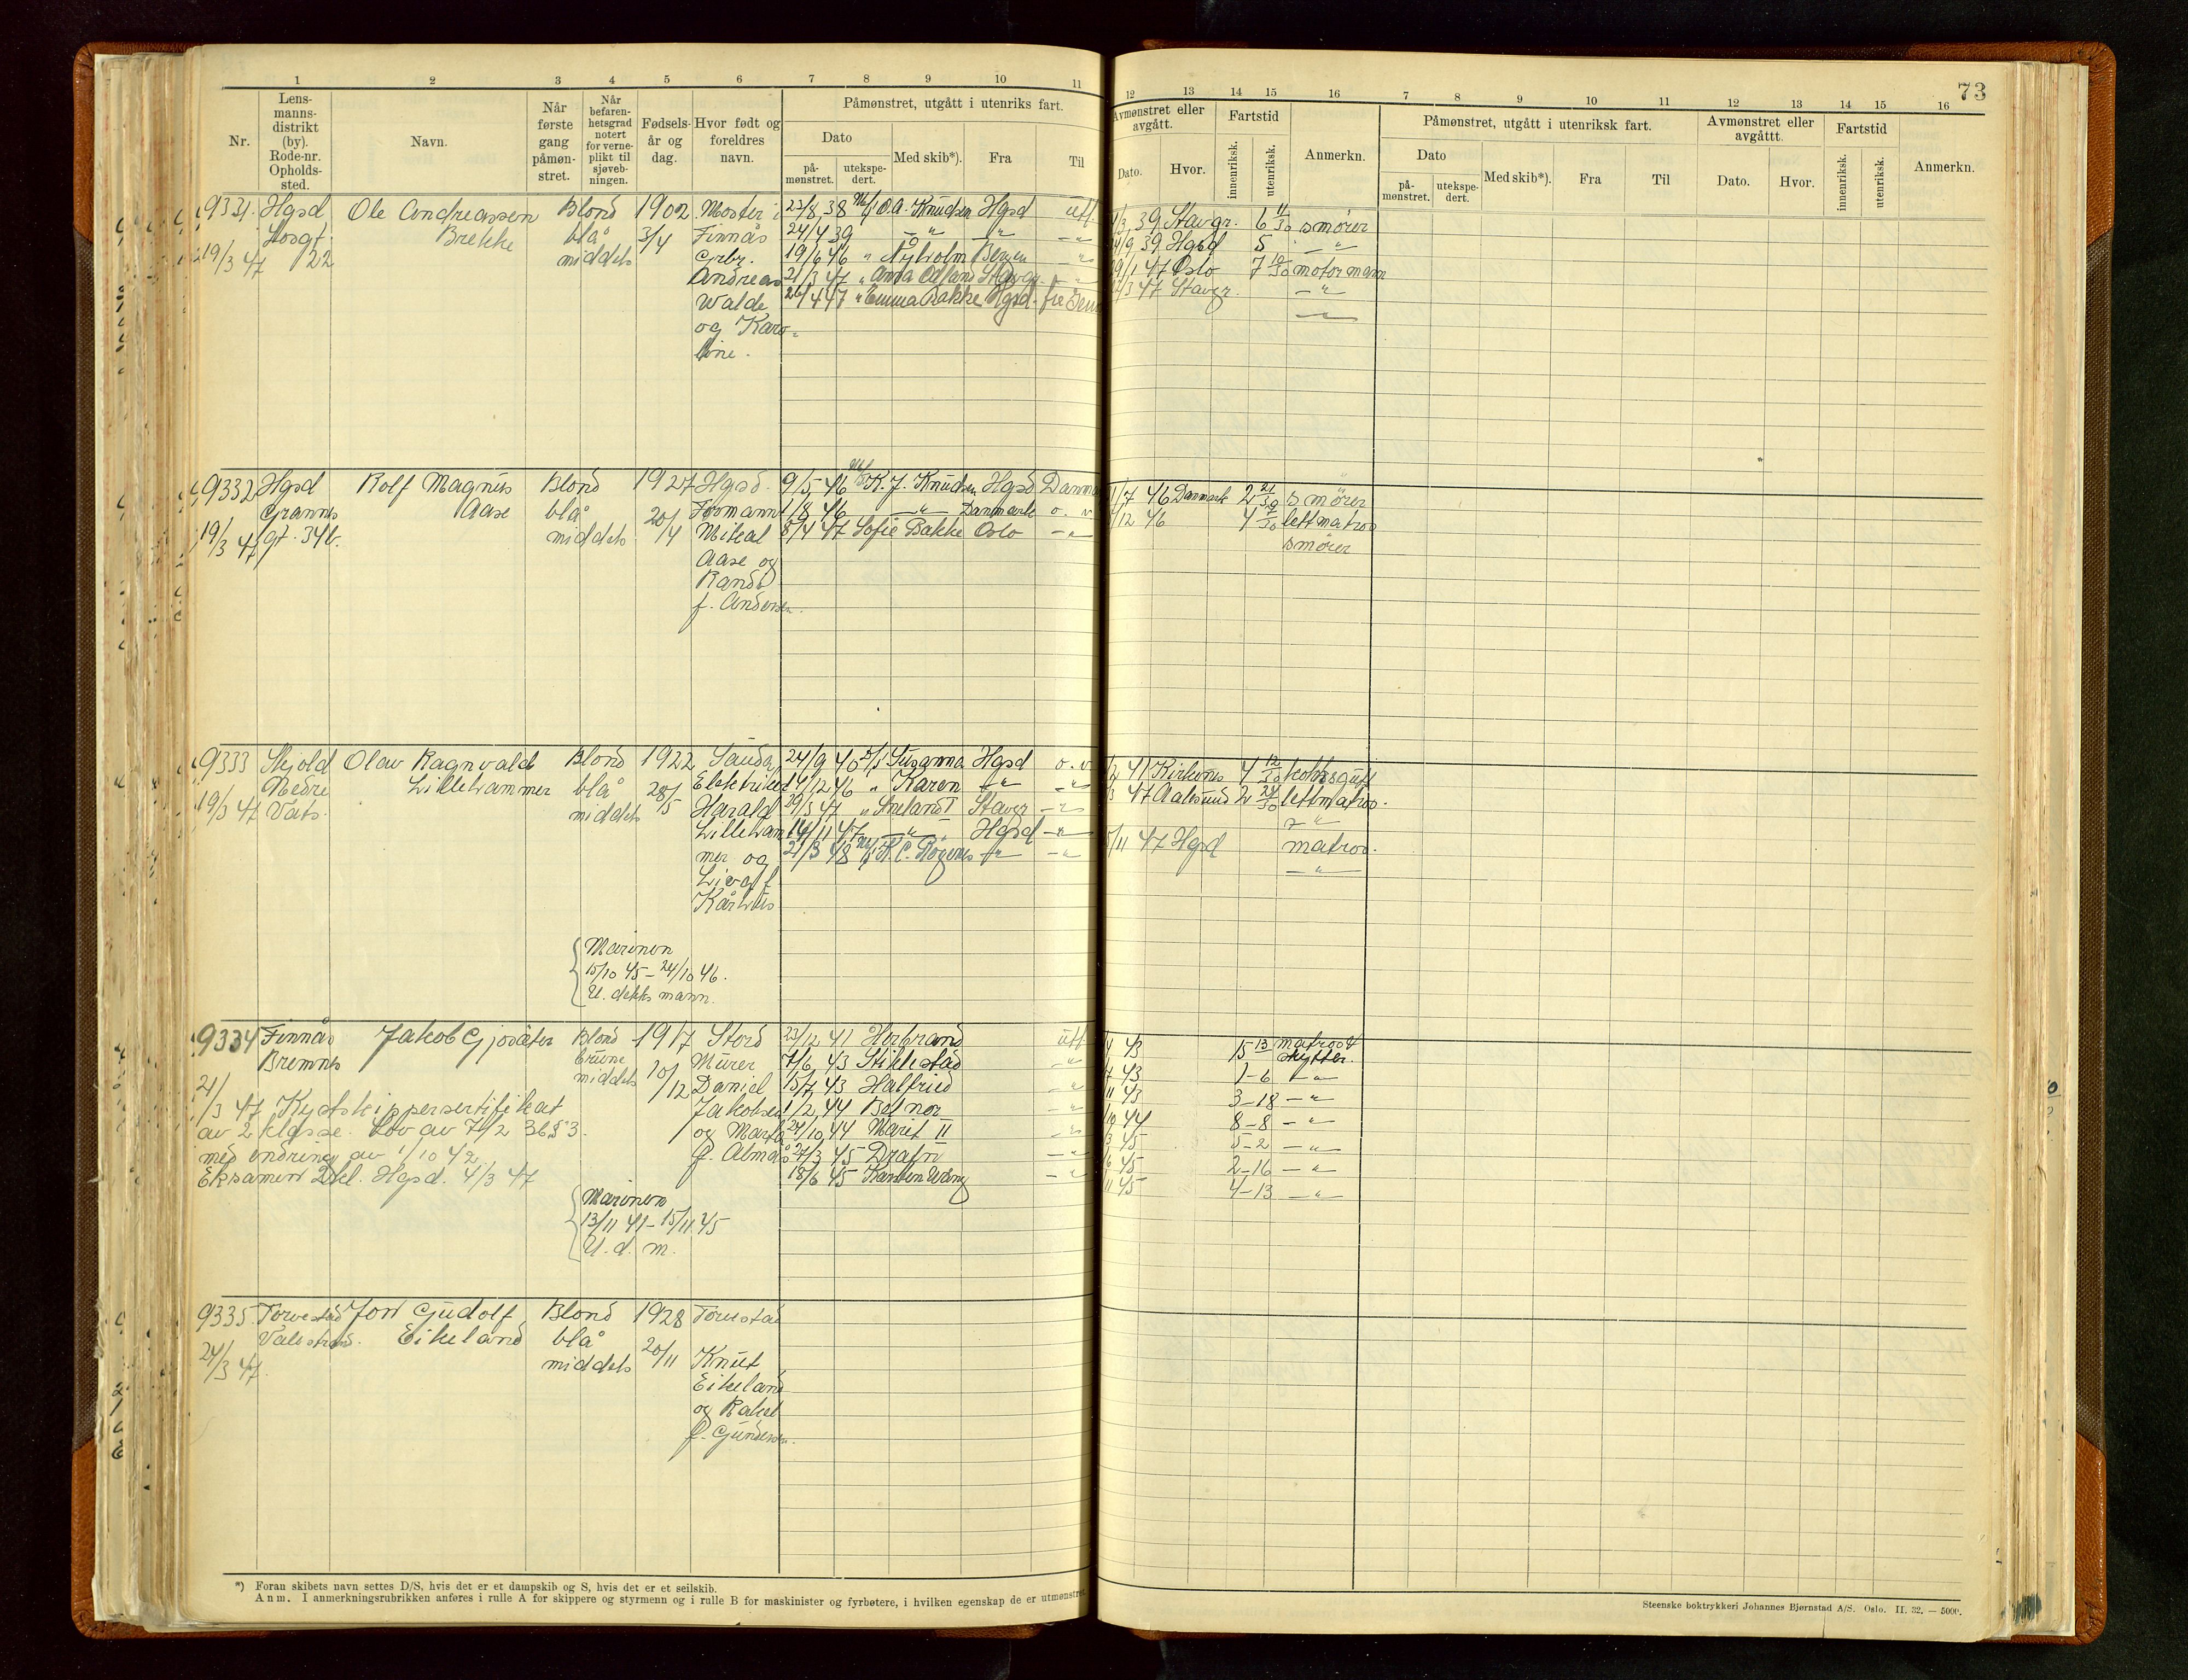 73
1 2 3 4 5 6 7 8 9 10 11
12 13 14 15 16 7 8 9 10 11 12 13 14 15 16
Nr.
Lens-
manns-
distrikt
(by).
Rode-nr.
Opholds-
sted.
Navn.
Når
første
gang
påmøn-
stret.
Når
befaren-
hetsgrad
notert
for verne-
plikt til
sjøveb-
ningen.
Fødsels-
år og
dag.
Hvor født og
foreldres
navn.
Påmønstret, utgått i utenriks fart.
Dato
på-
mønstret.
utekspe-
dert.
Med skib*).
Fra
Til
Avmønstret eller
avgått.
Dato.
Hvor.
Fartstid
innenriksk.
utenriksk.
Anmerkn.
Påmønstret, utgått i utenriksk fart.
Dato
på-
mønstret.
utekspe-
dert.
Med skib*).
Fra
Til
Avmønstret eller
avgåttt.
Dato.
Hvor.
Fartstid
innenriksk.
utenriksk.
Anmerkn.
9331. Hgsd Ole Andreassen Blond 1902 Moster i 23/8 38 M/S O.A. Knudsen Hgsd utl. 39 Stavgr. 6 11/30 smører
Brekke blå 3/4 Finnås 24/4 39 — " — — " — — " — 39 Hgsd 5 — " —
19/3 47 22 middels Grbr. 19/6 46 " Bergen — " — 47 Oslo 7 motormann
Andreas 21/3 47 " Anna Stavgr. " 47 Stavgr. — " —
Walde 26/4 47 " Emma Bakke Hgsd. — " —
og Karo-
line.
9332 Hgsd Rolf Magnus Blond 1927 Hgsd. 9/5 46 M/S K. J. Knudsen Hgsd 46 Danmark 2 smører
Aase blå 20/4 Formann 1/8 46 — " — Danmark o. v. /12 46 4 lettmatros
19/3 47 gt. 34b. middels Mikal 8/4 47 Sofie Bakke Oslo — " — smører
Aase og
f. Andersen.
9333 Skjold Olav Ragnvald Blond 1922 Sauda 24/9 40 D/S Susanna Hgsd o. v. 41 Kirkenes 4 12/30 dekksgutt
Nedre Lillehammer blå 28/5 14/12 46 " Karen — " — " 47 Aalesund 2 24/30 lettmatros.
19/3 47 Vats. middels Harald 29/3 47 " Stavgr — " — — " —
Lilleham- 14/11 47 — " — Hgsd — " — /11 47 Hgsd matros.
mer og 21/3 48 — " — — " — — " —
Kårhus
Marinen
15/10 45 – 24/10 46.
U. dekksmann.
9334 Finnås Jakob Gjosæter Blond 1917 Stord 23/12 41 Herbrand utl 43 15 13 matros &
Bremnes brune Murer 7/6 43 Stiklestad — " — 43 1–6 — " —
21/3 47 middels 10/12 Daniel 15/7 43 Halfried — " — 43 3–18 — " —
Kystskippersertifikat Jakobsen 1/2 44 Belnor — " — 44 8–8 — " —
av 2 klasse. Lov av 7/2 36 § 3. og Marta 24/10 44 Marit II — " — 45 5–2 — " —
med endring av 1/10 42 f. Almås 27/3 45 Drafn — " — 45 2–16 — " —
Eksamen 2 kl. Hgsd. 4/3 47 18/6 45 Karsten Wang — " — 45 4–13 — " —
Marinen
13/11 41 – 15/11 45
U. d. m.
9335 Torvestad Jon Gudolf Blond 1928 Torvestad
Eikeland blå
24/3 47. middels 20/11 Knut
Eikeland
og Rakel
f. Gundersen.
*) Foran skibets navn settes D/S, hvis det er et dampskib og S, hvis det er et seilskib.
Anm. I anmerkningsrubrikken anføres i rulle A for skippere og styrmenn og i rulle B for maskinister og fyrbøtere, i hvilken egenskap de er utmønstret
Steenske boktrykkeri Johannes Bjørnstad A/S. Oslo. II. 32. — 5000.